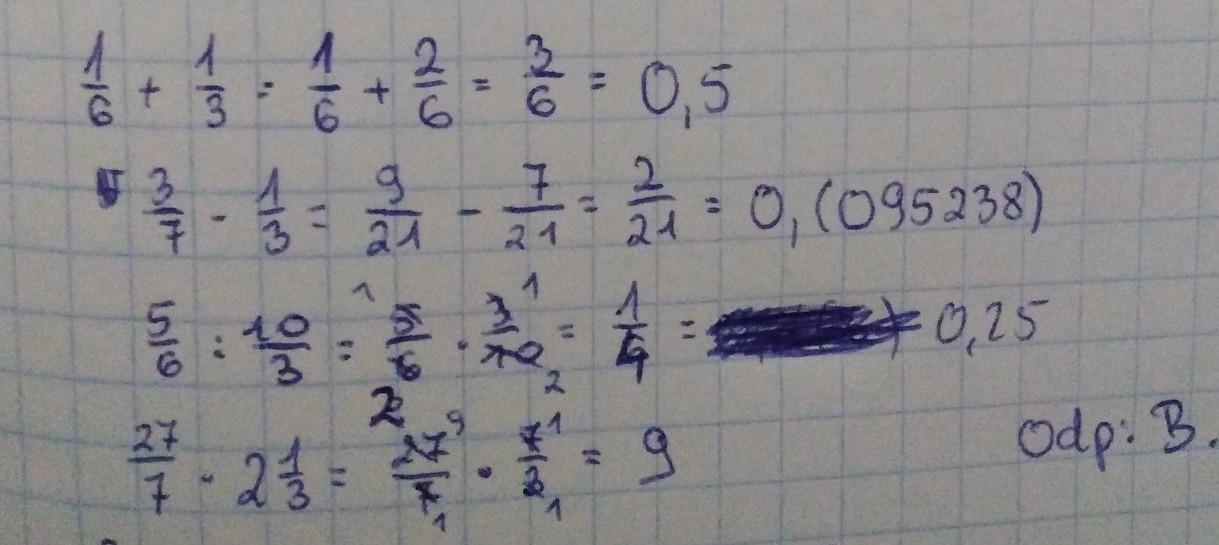 1/6 + 1/3 = 1/6 + 2/6 = 3/6 = 0,5
3/7 - 1/3 = 9/21 - 7/21 = 2/21 = 0,(095238)
5/6 : 10/3 = 5/6 1 2 · 3/10 1 2 = 1/4 = 0,25
27/7 · 2 1/3 = 27/7 9 1 · 7/3 1 1 = 9
Odp: B.